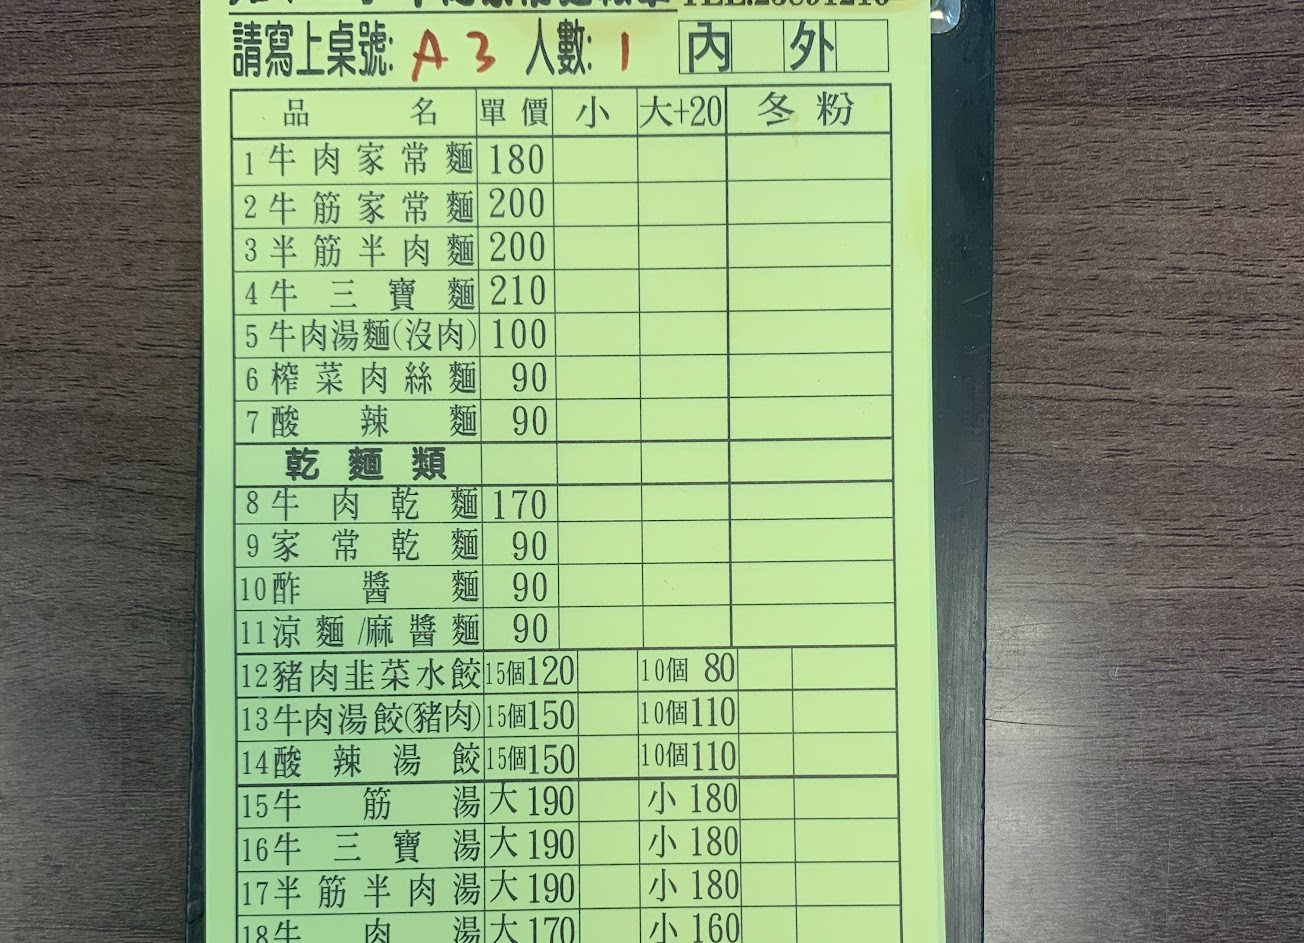 請寫上桌號: A 3 人數: 1 內 外
品名 單價 小 大+20 冬粉
1 牛肉家常麵 180
2 牛筋家常麵 200
3 半筋半肉麵 200
4 牛三寶麵 210
5 牛肉湯麵(沒肉) 100
6 榨菜肉絲麵 90
7 酸辣麵 90
乾麵類
8 牛肉乾麵 170
9 家常乾麵 90
10 酢醬麵 90
11 涼麵/麻醬麵 90
12 豬肉韭菜水餃 15個120 10個 80
13 牛肉湯餃(豬肉) 15個150 10個110
14 酸辣湯餃 15個150 10個110
15 牛筋湯 大 190 小 180
16 牛三寶湯 大 190 小 180
17 半筋半肉湯 大 190 小 180
18 牛肉湯 大 170 小 160